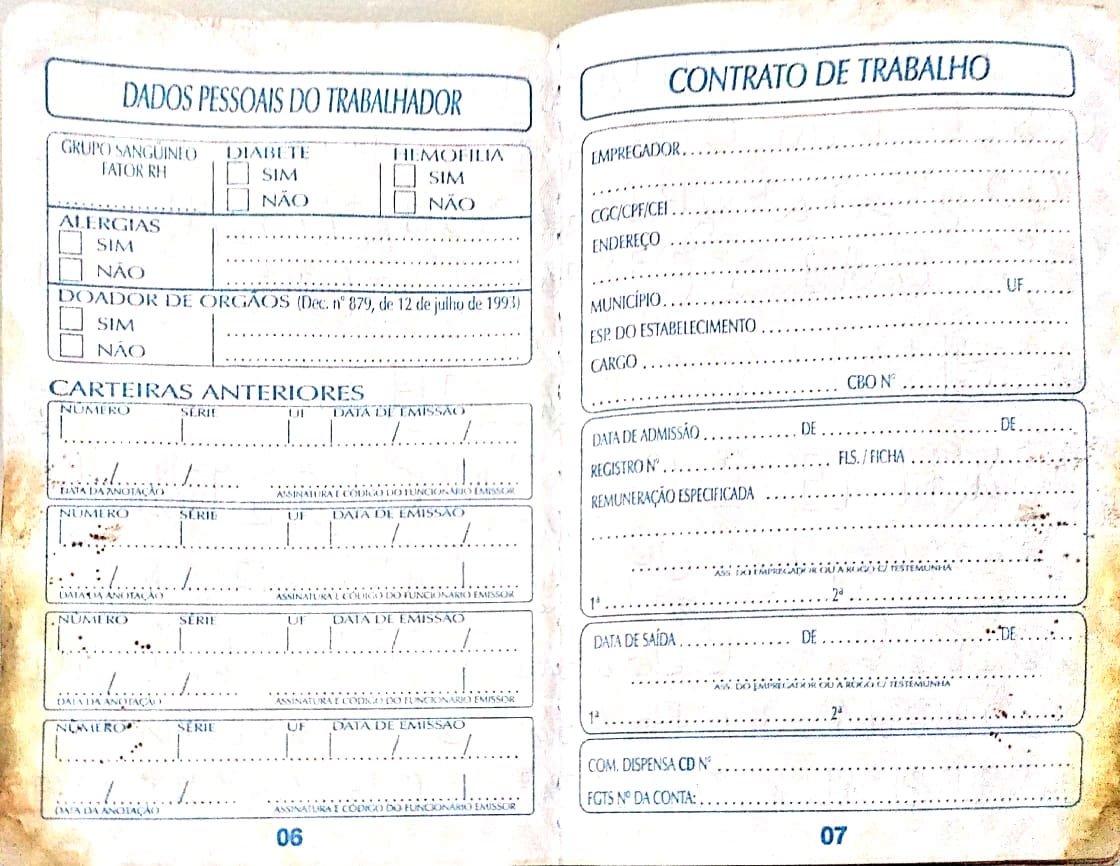 DADOS PESSOAIS DO TRABALHADOR
GRUPO SANGÜINEO
FATOR RH
DIABETE
SIM
NÃO
HEMOFILIA
SIM
NÃO
ALERGIAS
SIM
NÃO
DOADOR DE ORGÃOS (Dec. nº 879, de 12 de julho de 1993)
SIM
NÃO
CARTEIRAS ANTERIORES
NÚMERO SÉRIE UF DATA DE EMISSÃO
/ /
/ /
DATA DA ANOTAÇÃO ASSINATURA E CÓDIGO DO FUNCIONÁRIO EMISSOR
NÚMERO SÉRIE UF DATA DE EMISSÃO
/ /
/ /
DATA DA ANOTAÇÃO ASSINATURA E CÓDIGO DO FUNCIONÁRIO EMISSOR
NÚMERO SÉRIE UF DATA DE EMISSÃO
/ /
/ /
DATA DA ANOTAÇÃO ASSINATURA E CÓDIGO DO FUNCIONÁRIO EMISSOR
NÚMERO SÉRIE UF DATA DE EMISSÃO
/ /
/ /
DATA DA ANOTAÇÃO ASSINATURA E CÓDIGO DO FUNCIONÁRIO EMISSOR
06
CONTRATO DE TRABALHO
EMPREGADOR
CGC/CPF/CEI
ENDEREÇO
MUNICÍPIO UF
ESP. DO ESTABELECIMENTO
CARGO
CBO Nº
DATA DE ADMISSÃO DE DE
REGISTRO Nº FLS. / FICHA
REMUNERAÇÃO ESPECIFICADA
ASS. DO EMPREGADOR OU A ROGO C/ TESTEMUNHA
1ª 2ª
DATA DE SAÍDA DE DE
ASS. DO EMPREGADOR OU A ROGO C/ TESTEMUNHA
1ª 2ª
COM. DISPENSA CD Nº
FGTS Nº DA CONTA:
07